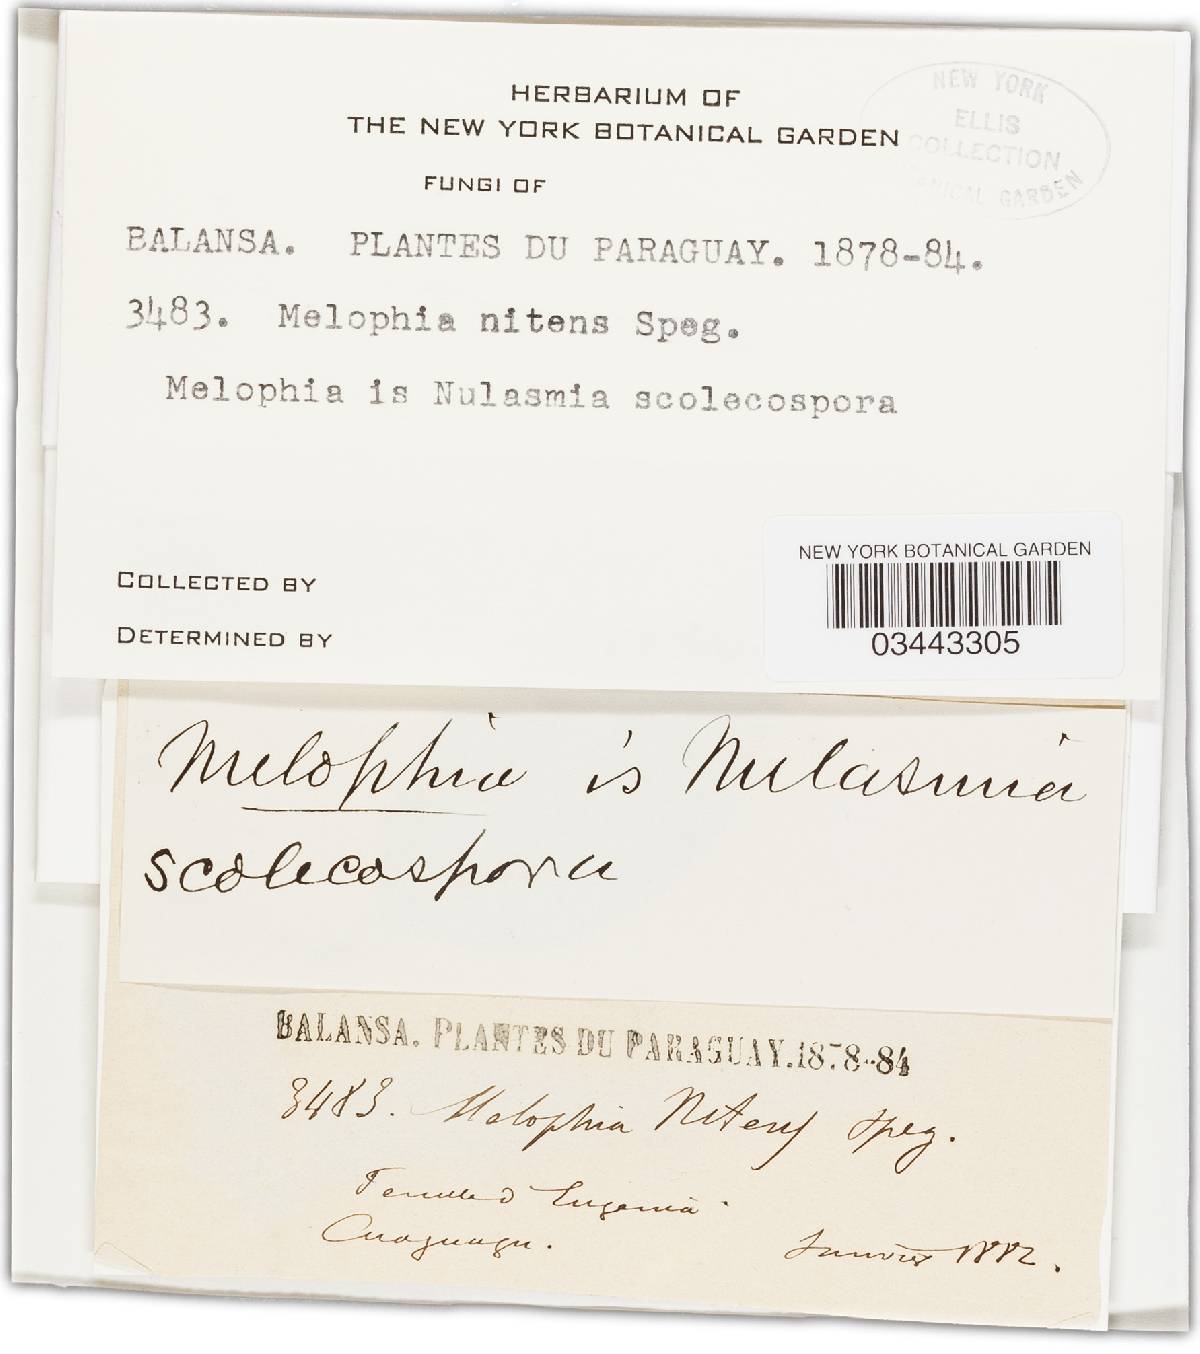 HERBARIUM OF
THE NEW YORK BOTANICAL GARDEN
NEW YORK
ELLIS
COLLECTION
BOTANICAL GARDEN
FUNGI OF
BALANSA. PLANTES DU PARAGUAY. 1878-84.
3483. Melophia nitens Speg.
Melophia is Nulasmia scolecospora
NEW YORK BOTANICAL GARDEN
03443305
COLLECTED BY
DETERMINED BY
Melophia is Nulasmia
scolecospora
BALANSA. PLANTES DU PARAGUAY. 1878-84
3483. Melophia Nitens Speg.
Feuille d'Eugenia.
Guaguagu.
Janvier 1882.